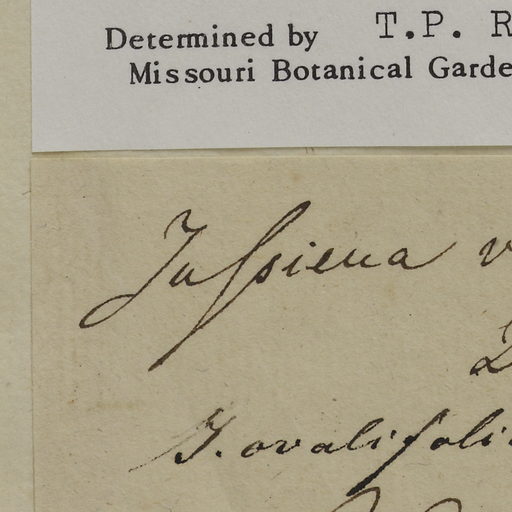 Determined by T.P. R
Missouri Botanical Garde
Jussieua v
D
J. ovalifoli